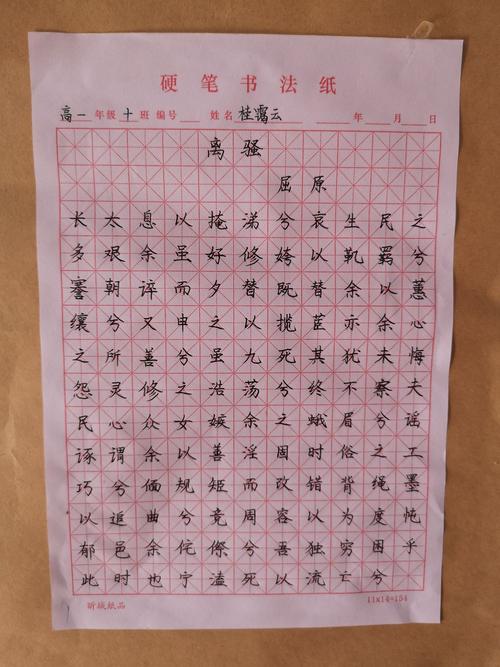 硬笔书法纸
高一年级十班 编号 姓名桂霭云 年 月 日
离骚
屈原
长太息以掩涕兮哀生民之
多艰余虽好修姱以鞿羁兮
謇朝谇而夕替既替余以蕙
纕兮又申之以揽茝亦余心
之所善兮虽九死其犹未悔
怨灵修之浩荡兮终不察夫
民心众女嫉余之蛾眉兮谣
诼谓余以善淫固时俗之工
巧兮偭规矩而改错背绳墨
以追曲兮竞周容以为度忳
郁邑余侘傺兮吾独穷困乎
此时也宁溘死以流亡兮
昕城纸品 11x14=154